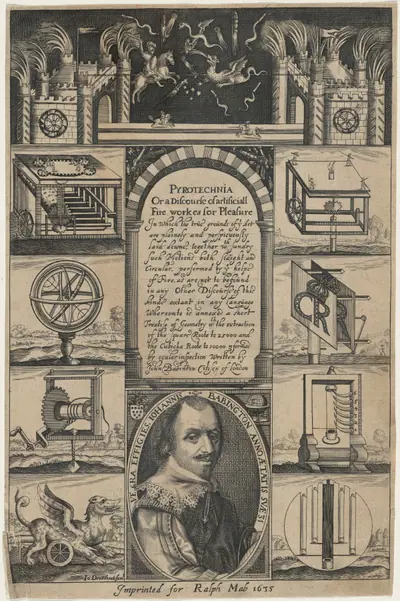 PYROTECHNIA
Or a Discourse of artificiall
Fire workes for Pleasure
In which the true grounds of yͭ Art
are plainely and perspicuously
laid downe, together wͭʰ sundry
such Motions both straight and
Circular, performed by yᵉ helpe
of Fire, as are not to be found
in any Other Discourse of this
kinde extant in any Language
Whereunto is annexed a short
Treatise of Geometry wͭʰ the extraction
of the Square Roote to 25000 and
the Cubicke Roote to 10000
by ocular inspection Written by
John Babington Citizen of London
VERA EFFIGIES IOHANNIS BABINGTON ANNO ÆTATIS SVÆ 31
Io: Droeshout sculp.
Imprinted for Ralph Mab 1635